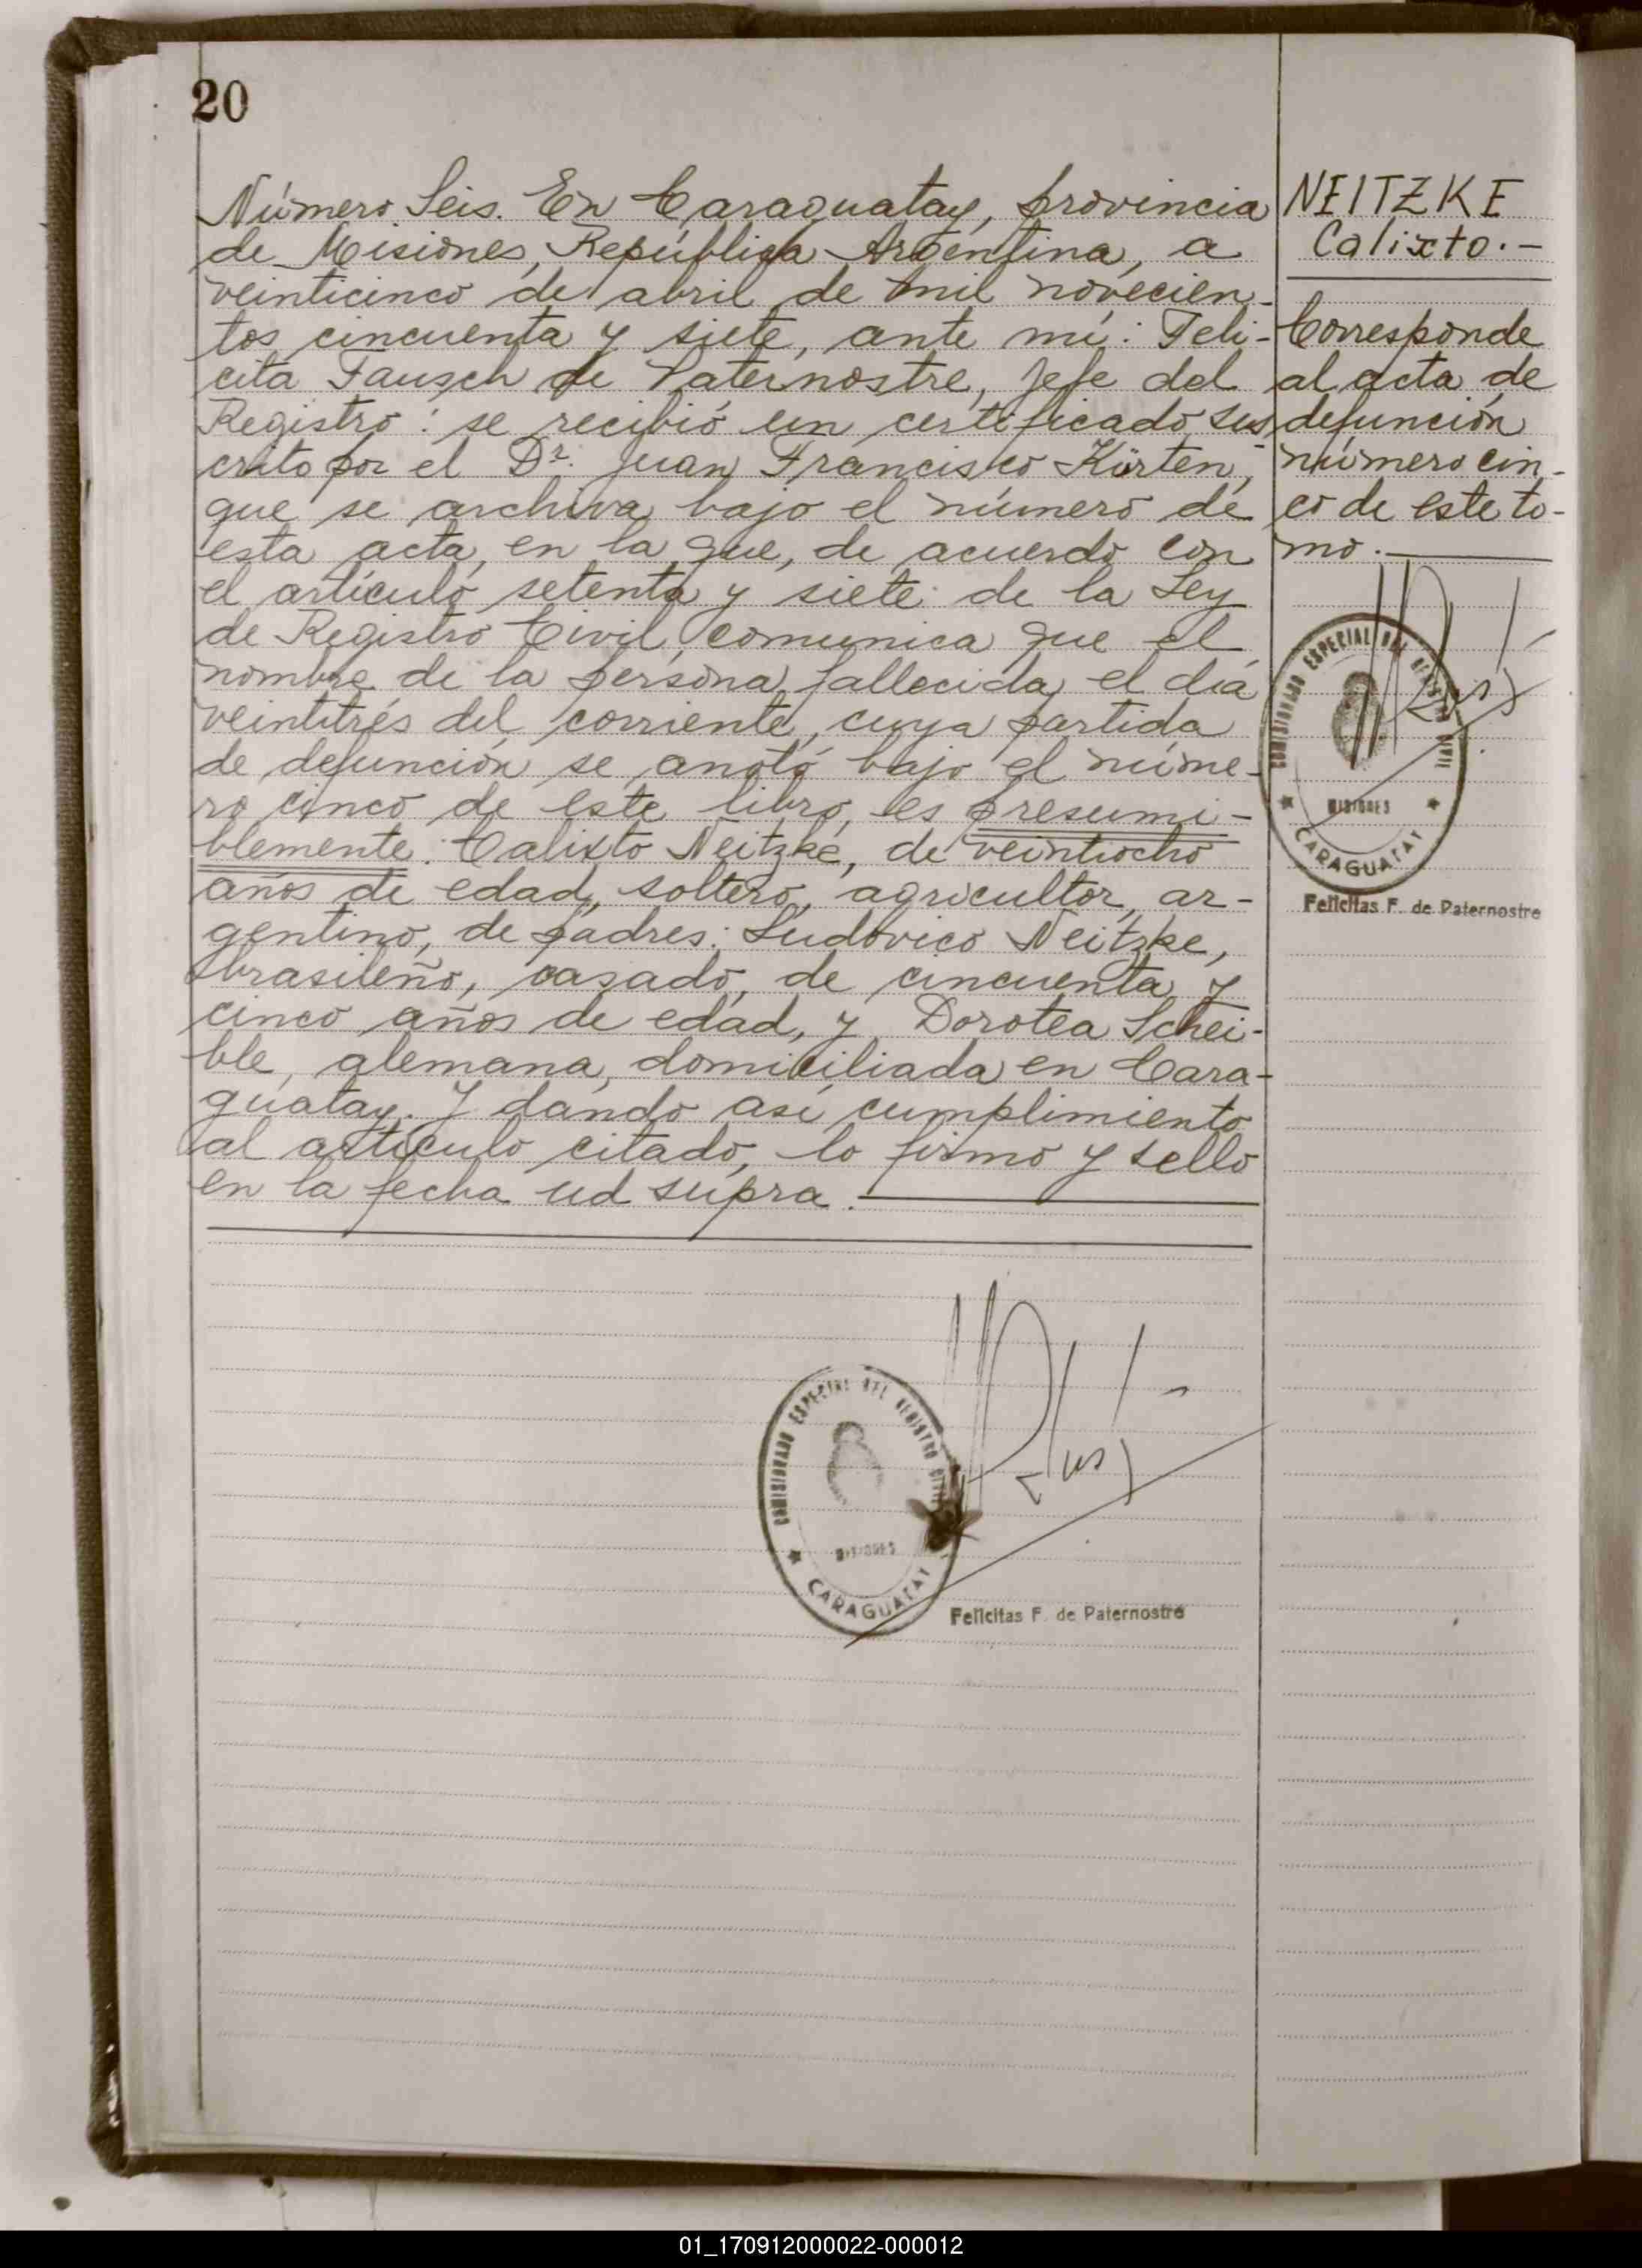 20
Número Seis. En Caraguatay, provincia
de Misiones, República Argentina, a
veinticinco de abril de mil novecien-
tos cincuenta y siete, ante mí: Feli-
cita Fausch de Paternostre, Jefe del
Registro: se recibió un certificado sus-
crito por el Dr. Juan Francisco Kürten,
que se archiva bajo el número de
esta acta, en la que, de acuerdo con
el artículo setenta y siete de la Ley
de Registro Civil, comunica que el
nombre de la persona fallecida el día
veintitrés del corriente, cuya partida
de defunción se anotó bajo el núme-
ro cinco de este libro, es presumi-
blemente: Calixto Neitzke, de veintiocho
años de edad, soltero, agricultor, ar-
gentino, de padres: Ludovico Neitzke,
brasileño, casado, de cincuenta y
cinco años de edad, y Dorotea Schei-
ble, alemana, domiciliada en Cara-
guatay. Y dando así cumplimiento
al artículo citado, lo firmo y sello
en la fecha ud supra.
NEITZKE
Calixto.-
Corresponde
al acta de
defunción
número cin-
co de este to-
mo.
COMISIONADO ESPECIAL DEL REGISTRO CIVIL
MISIONES
CARAGUATAY
Felicitas F. de Paternostre
COMISIONADO ESPECIAL DEL REGISTRO CIVIL
MISIONES
CARAGUATAY
Felicitas F. de Paternostre
01_170912000022-000012